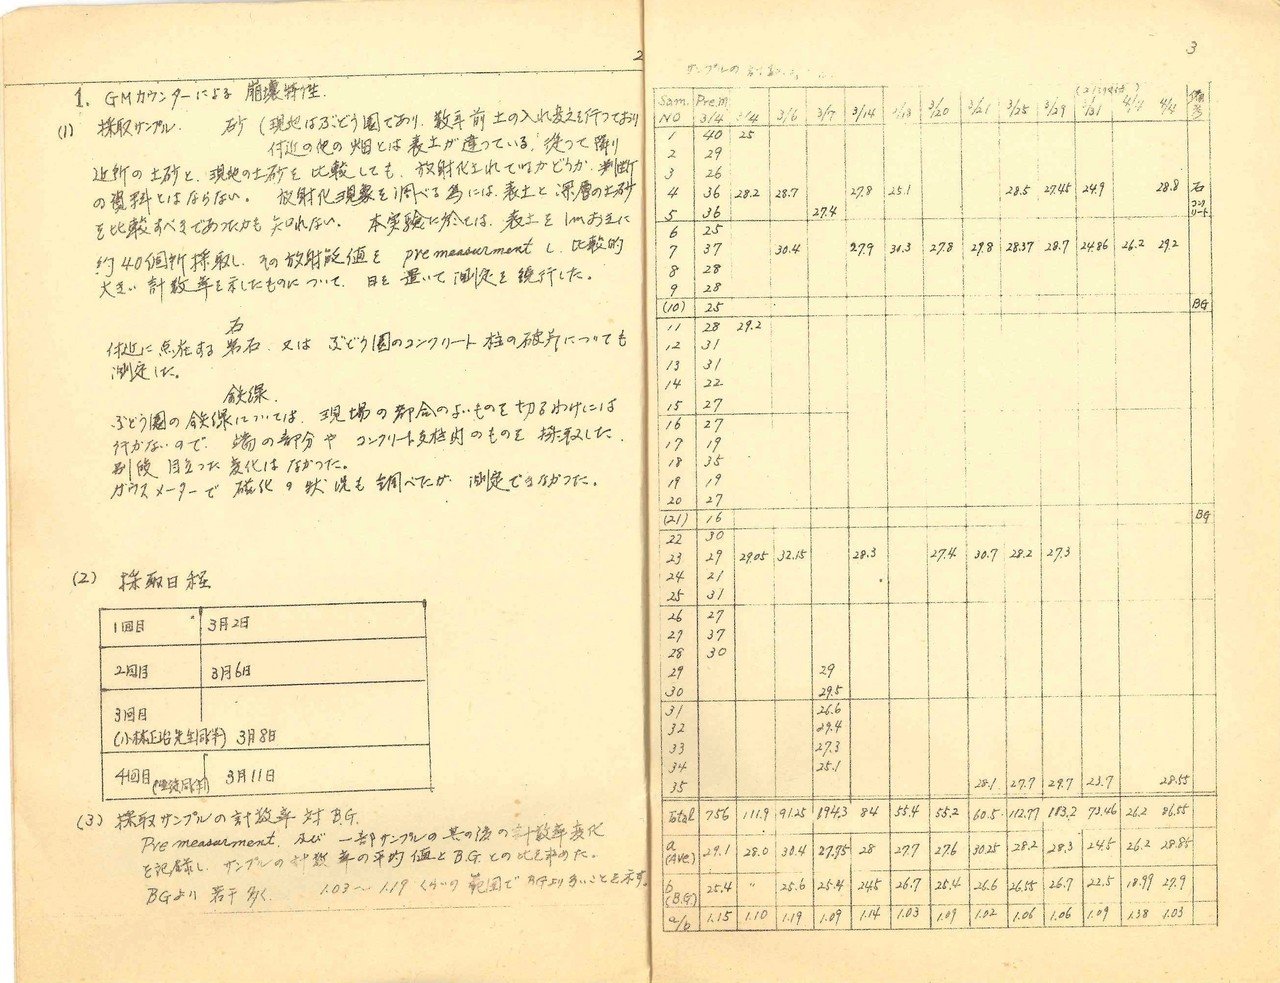 2
1. GMカウンターによる 崩壊特性.
(1) 採取サンプル. 砂 (現地はぶどう園であり、数年前土の入れ変えを行っており
付近の他の畑とは表土が違っている. 従って
近所の土砂と、現地の土砂を比較しても、放射化されているかどうか、判断
の資料とはならない。 放射化現象を調べる為には、表土と深層の土砂
を比較すべきであったかも知れない。 本実験に於ては、表土を1mおきに
約40個所採取し、その放射能値を premeasurmentし、比較的
大きい計数率を示したものについて、日を置いて測定を続行した。
石
付近に点在する岩石、又は ぶどう園のコンクリート柱の破片についても
測定した。
鉄線.
ぶどう園の鉄線については、現場の都合のよいものを切るわけには
行かないので、端の部分や コンクリート支柱内のものを採取した.
別段 目立った変化はなかった。
ガウスメーターで磁化の状況も調べたが 測定できなかった。
(2) 採取日程
1回目 3月2日
2回目 3月6日
3回目
(小林正治先生同伴) 3月8日
4回目 (生徒同伴) 3月11日
(3) 採取サンプルの計数率対B.G.
Premeasurment, 及び 一部サンプルの其の後の計数率変化
を記録し、サンプルの計数率の平均値とB.G.との比を求めた。
BGより若干多く、 1.03〜1.19 くらいの範囲でBGより多いことを示す。
3
サンプルの
Sam. NO Prem 3/4 3/4 3/6 3/7 3/14 3/18 3/20 3/21 3/25 3/29 3/31 4/4 4/4 備考
1 40 25
2 29
3 26
4 36 28.2 28.7 27.8 25.1 28.5 27.45 24.9 28.8 石
5 36 27.4 コンクリート
6 25
7 37 30.4 27.9 30.3 27.8 29.8 28.37 28.7 24.86 26.2 29.2
8 28
9 28
(10) 25 BG
11 28 29.2
12 31
13 31
14 22
15 27
16 27
17 19
18 35
19 19
20 27
(21) 16 BG
22 30
23 29 29.05 32.15 28.3 27.4 30.7 28.2 27.3
24 21
25 31
26 27
27 37
28 30
29 29
30 29.5
31 26.6
32 29.4
33 27.3
34 25.1
35 28.1 27.7 29.7 23.7 28.55
Total 756 111.9 91.25 194.3 84 55.4 55.2 60.5 112.77 183.2 73.46 26.2 86.55
a (Ave) 29.1 28.0 30.4 27.75 28 27.7 27.6 30.25 28.2 28.3 24.5 26.2 28.85
b (B.G) 25.4 〃 25.6 25.4 24.5 26.7 25.4 26.6 26.55 26.7 22.5 18.99 27.9
a/b 1.15 1.10 1.19 1.09 1.14 1.03 1.09 1.02 1.06 1.06 1.09 1.38 1.03